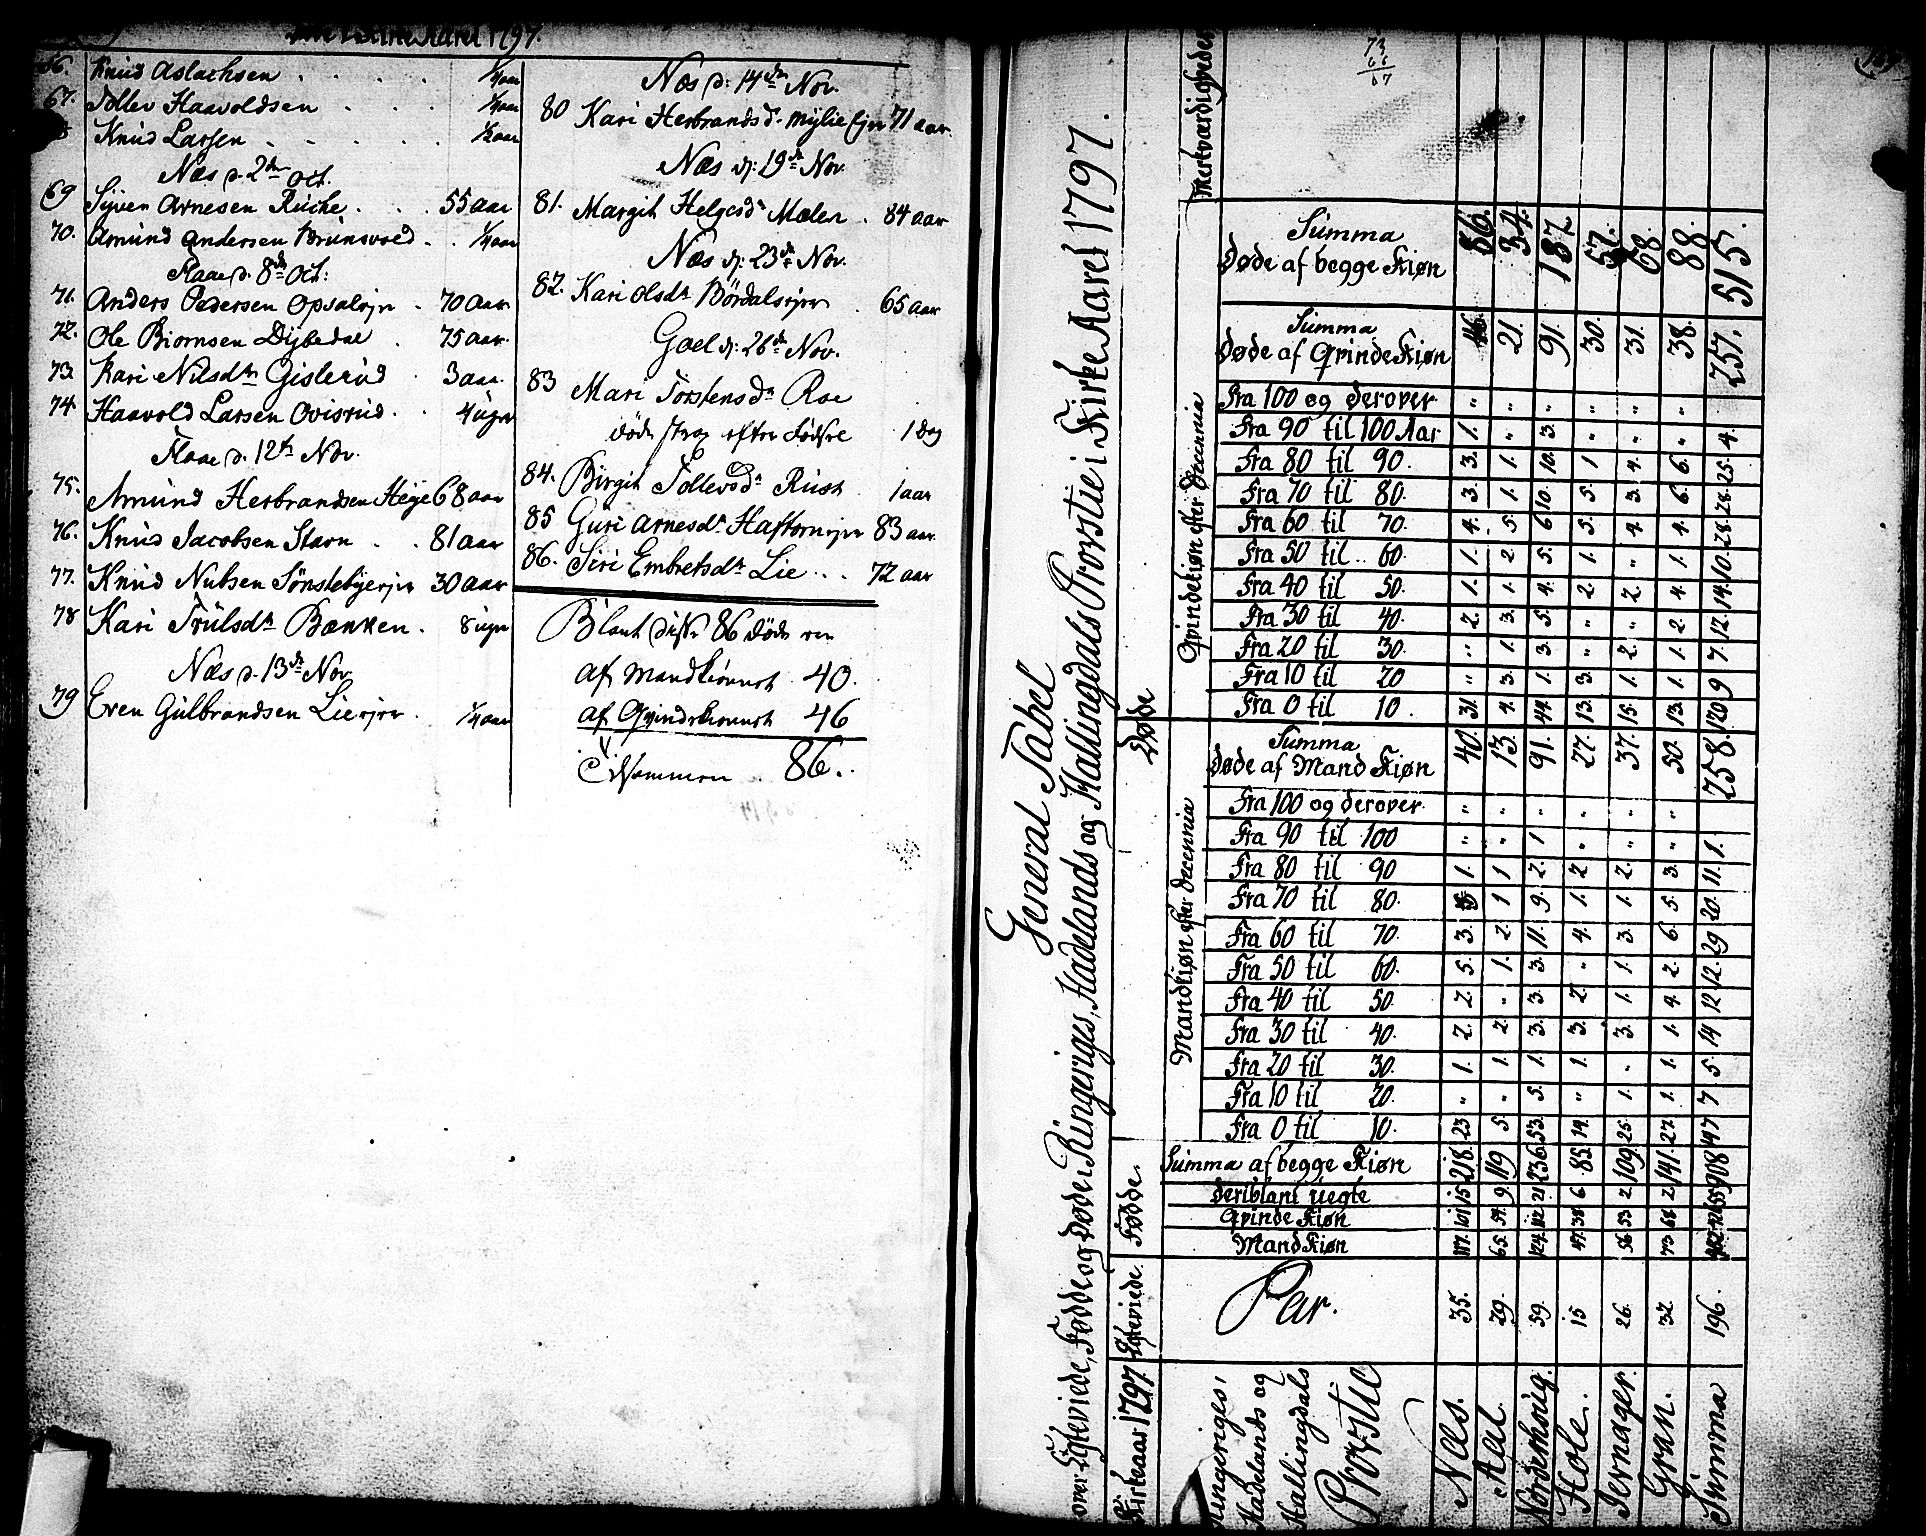 Kirke Aaret 1797.
66. Knud Aslachsen . . . . ¼ aar
67. Tollev Haavoldsen . . . ¼ aar
Knud Larsen . . . . . ½ aar
Næs d. 2den Oct.
69 Syver Arnesen Ruche . . . 55 aar
70. Amund Andersen Brunsvold . . ¼ aar
Flaae d. 8de Oct:
71. Anders Pedersen Opsalejer . 70 Aar
72. Ole Biørnsen Dybedal . 75 aar
73. Kari Nilsdtr Gislerud . 3 aar.
74 Haavold Larsen Ovisrud . . 4 uger
Flaae d. 12te Nov.
75. Amund Herbrandsen Heye 68 aar
76. Knud Jacobsen Stavn . . 81 aar
77. Knud Nubsen Sønstebyejer 30 aar
78 Kari Trulsdtr Bænken . 8 uger
Næs d. 13de Nov
79 Even Gulbrandsen Lieejer . ¼ aar
Næs d: 14de Nov.
80 Kari Herbrandsd. Mylie Ejer 71 aar
Næs d: 19de Nov.
81. Margit Helgesdr Mælen . 84 aar
Næs d: 23de Nov.
82. Kari Olsdtr Børdalsejer . 65 aar
Goel d: 26de Nov.
83 Mari Torstensdr Roe
døde strax efter Fødsel 1 dag
84. Birgit Tollevsdr Rust . 1 aar
85 Guri Arnesdr Haftornejer 83 aar
86. Siri Embretsdtr Lie . . . 72 aar
Blant disse 86 Døde ere
af Mandkiønnet 40.
af Qvindekiønnet 46
Tilsammen . 86.
73
67
General Tabel
over Egteviede, Fødde og Døde i Ringeriges, Hadelands og Hallingdals Provstie i Kirke Aaret 1797.
Kirkeaar 1797 Egteviede. Fødde. Døde
Mandkiøn efter Decennia Qvindekiøn efter Decennia Merkværdigheder
Ringeriges, Hadelands og Hallingdals Provstie Næs. Aal. Nordenhoug. Hole. Jernager. Gran. Summa
Par. 35. 29. 59. 15 26. 32. 196.
Mand Kiøn 117. 65. 124. 47. 56 73
Qvinde Kiøn 101 54. 112 38 53 68
Deriblant uegte 15 9 21 6 2 2 55
Summa af begge Kiøn 218. 119 236 85. 109. 141. 908
Fra 0 til 10. 23 5. 53. 14. 25. 27. 147
Fra 10 til 20. " " 5. " 1. 1. 7
Fra 20 til 30. 1. 1. 1. 1. " 1. 5
Fra 30 til 40. 2. 2. 3. 3. 3. 1. 14
Fra 40 til 50. 2. " 3. 2. 1. 4. 12
Fra 50 til 60. 5. 1. 3. " 1. 2. 12.
Fra 60 til 70. 3. 2. 11. 4. 3. 6. 29
Fra 70 til 80. 1 9. 1. 1. 5. 20.
Fra 80 til 90 1. 1 2. 2 2. 3. 11.
Fra 90 til 100 " " 1 " " " 1.
Fra 100 og derover " " " " " "
Summa Døde af Mand Kiøn 40. 13. 91. 27. 37. 50. 258.
Fra 0 til 10. 31. 4. 44. 13. 15. 13. 120
Fra 10 til 20 " 3. 1. 3. 1. 1. 9
Fra 20 til 30. " 1. 3. " 2. 1. 7.
Fra 30 til 40. 2. 3. 5. " " 2. 12.
Fra 40 til 50. 1. 1. 4. 2. 2. 4. 14.
Fra 50 til .. 60. 1. 2 5. 1. " 1. 10.
Fra 60 til 70. 4. 5. 6 5. 4. 4. 28.
Fra 70 til 80. 3. 1. 10. 5. 3. 6. 28.
Fra 80 til 90. 3. 1. 10. 1 4. 6. 25.
Fra 90 til 100 Aar 1. " 3. " " " 4.
Fra 100 og derover " " " " " "
Summa Døde af Qvinde Kiøn 46. 21. 91. 30. 31. 38. 257.
Summa Døde af begge Kiøn 86. 34. 182. 57. 68. 88. 515.